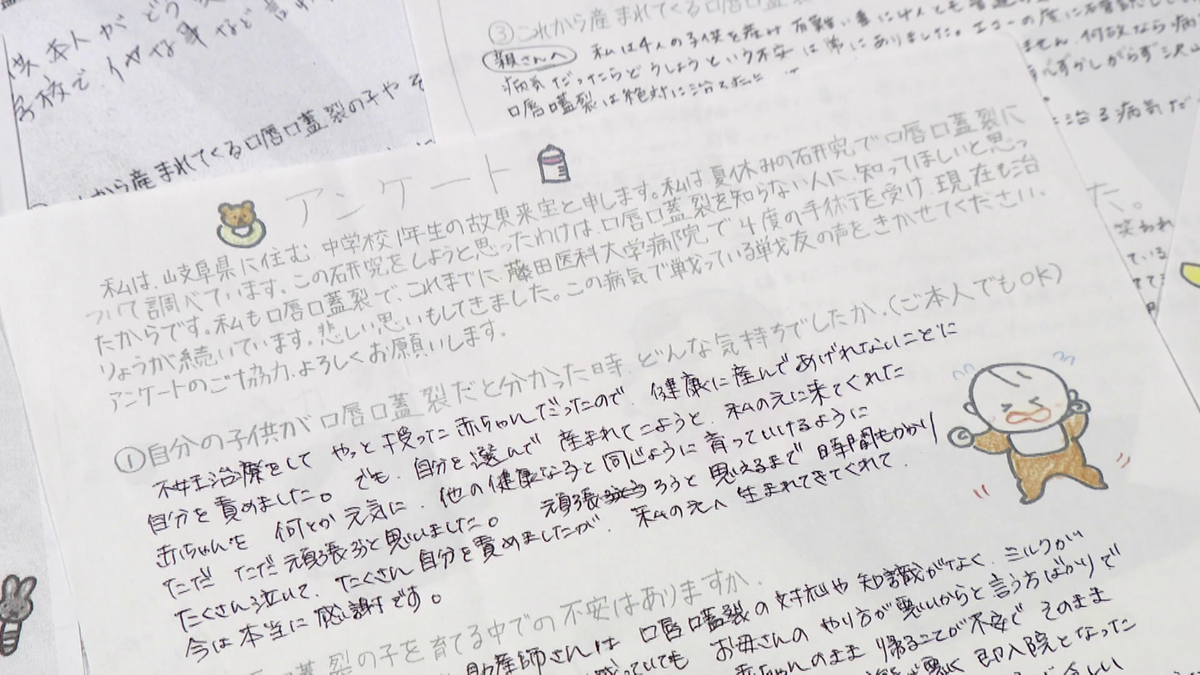 供本人がどう
学校でイヤな事など言わ
から産まれてくる口唇口蓋裂の子やそ
③これから産まれてくる口唇口蓋
親さんへ 私は4人の子供を産み
病気だったらどうしようという不安は常にありました。エコーの度に
口唇口蓋裂は絶対に治る
ません。何故なら病
に治る病気だ
た。
笑われ
ている
アンケート
私は、岐阜県に住む、中学校1年生の故東来宝と申します。私は夏休みの研究で口唇口蓋裂に
ついて調べています。この研究をしようと思ったわけは、口唇口蓋裂を知らない人に、知ってほしいと思っ
たからです。私も口唇口蓋裂で、これまでに、藤田医科大学病院で4度の手術を受け、現在も治
りょうが続いています。悲しい思いもしてきました。この病気で戦っている戦友の声をきかせてください。
アンケートのご協力、よろしくお願いします。
①自分の子供が口唇口蓋裂だと分かった時、どんな気持ちでしたか。(ご本人でもOK)
不妊治療をして やっと授った赤ちゃんだったので、健康に産んであげれないことに
自分を責めました。でも、自分を選んで 産まれてこようと、私の元に来てくれた
赤ちゃんを 何とか元気に、他の健康な子と同じように育っていけるように
ただ ただ頑張ろうと思いました。 頑張ろうと思えるまで時間もかかり
たくさん泣いて、たくさん自分を責めましたが、私の元へ生まれてきてくれて、
今は本当に感謝です。
蓋裂の子を育てる中での不安はありますか。
助産師さんは 口唇口蓋裂の対応や知識がなく、ミルクが
っていても お母さんのやり方が悪いからと言う方ばかりで
赤ちゃんのまま帰ることが不安で そのまま
が悪く 即入院となった